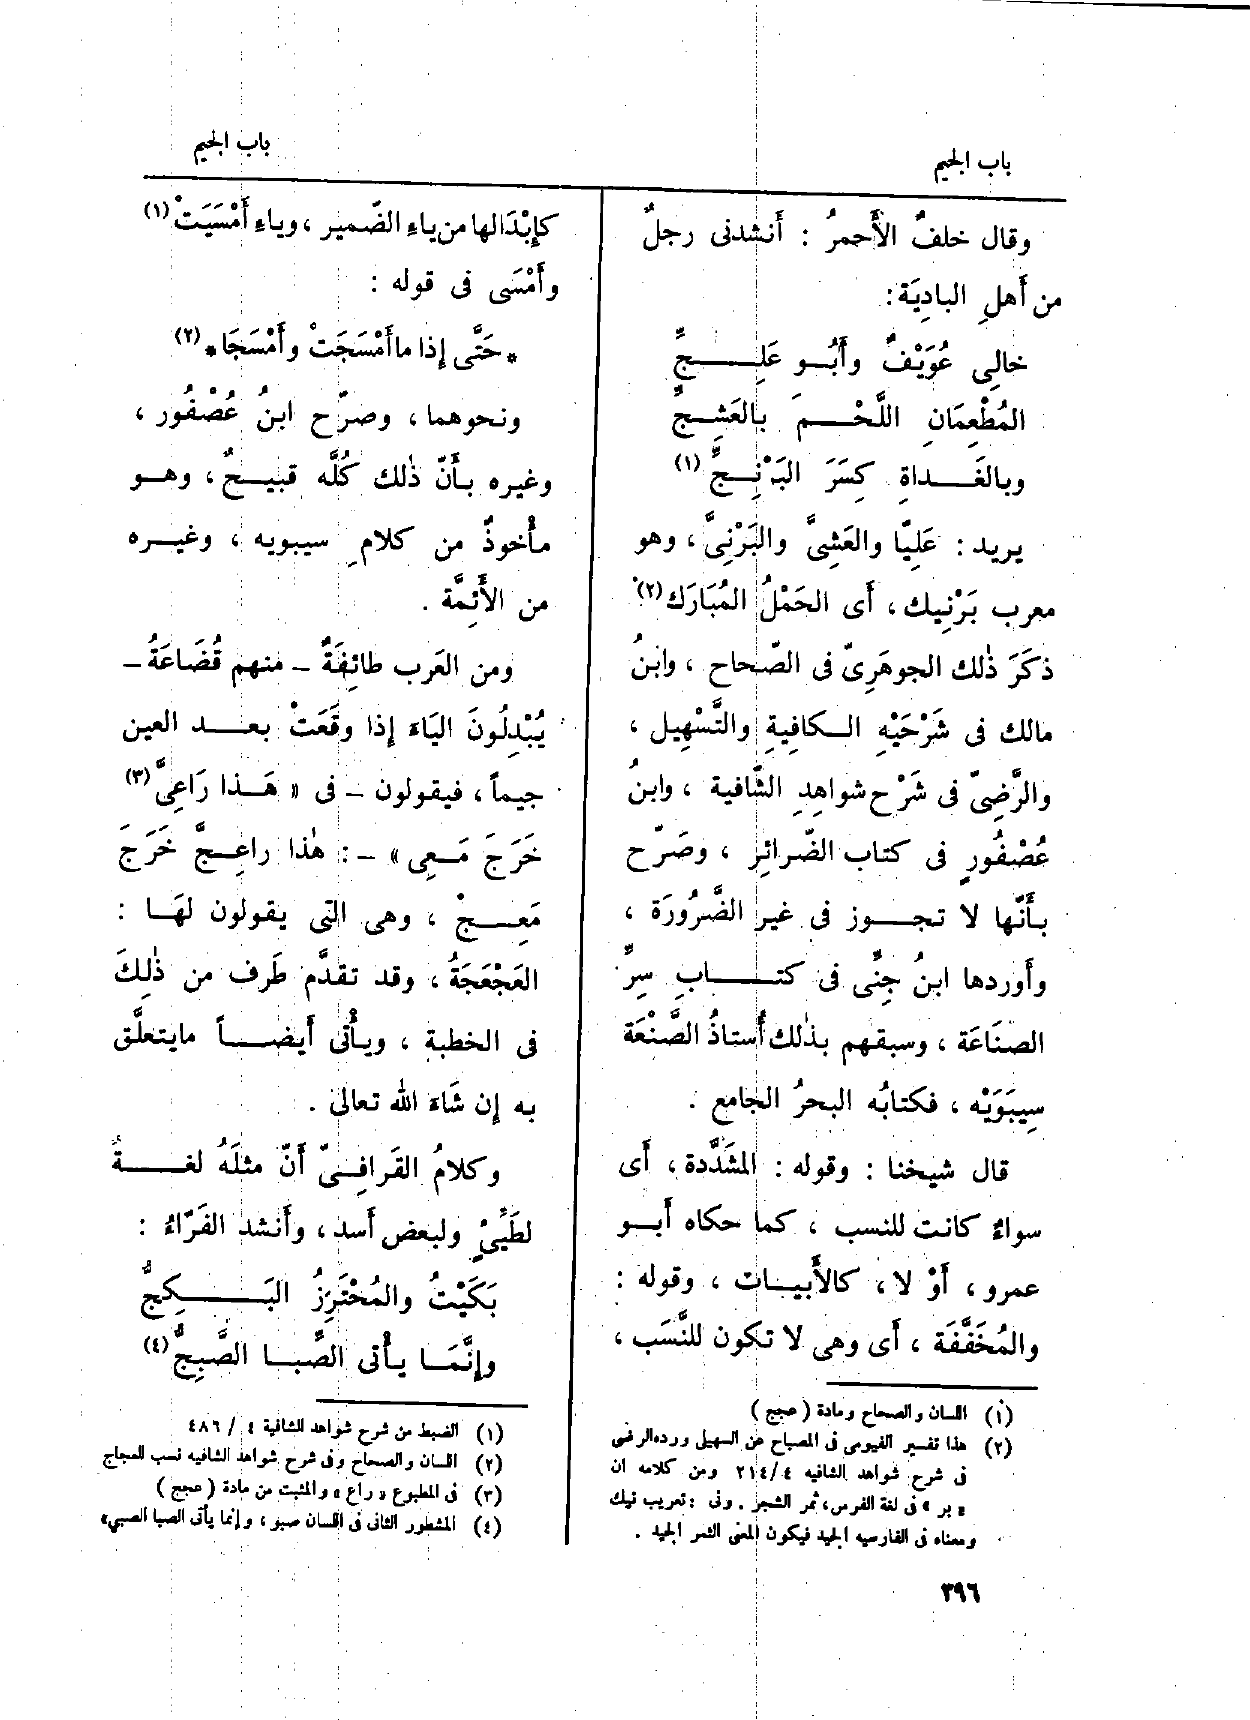 باب الجيم
وقال خلفٌ الأَحمرُ : أَنشدنى رجلٌ
من أَهلِ البادِيَة:
خالِى عُوَيْفٌ وأَبُو عَلِجِّ
المُطْعِمَانِ اللَّحْمَ بالعَشِجِّ
وبالغَداةِ كِسَرَ البَرْنِجِّ (١)
يريد : عَلِيًّا والعَشِىَّ والبَرْنِىَّ ، وهو
معرب بَرْنِيك ، أَى الحَمْلُ المُبَارَك (٢).
ذكَرَ ذٰلك الجوهَرِىّ فى الصّحاح ، وابنُ
مالك فى شَرْحَيْهِ الكافِيةِ والتَّسْهِيل ،
والرَّضِىّ فى شَرْح شواهِدِ الشّافية ، وابنُ
عُصْفُورٍ فى كتاب الضّرائِرِ ، وصَرّح
بأَنّها لا تجوز فى غير الضَّرُورَة ،
وأَوردها ابنُ جِنِّى فى كتابِ سِرِّ
الصنَاعَة ، وسبقهم بذٰلك أُستاذُ الصَّنْعَة
سِيبَوَيْه ، فكتابُه البحرُ الجامع .
قال شيخنا : وقوله : المشَدَّدة ، أَى
سواءٌ كانت للنسب ، كما حكاه أَبو
عمرو ، أَوْ لا ، كالأَبيات ، وقوله :
والمُخَفَّفَة ، أَى وهى لا تكون للنَّسَب ،
(١) اللسان والصحاح ومادة ( عجج )
(٢) هذا تفسير الفيومى فى المصباح عن السهيل ورده الرضى
فى شرح شواهد الشافيه ٢١٤/٤ ومن كلامه ان
« بر » فى لغة الفرس، ثمر الشجر . وفى : تعريب نيك
ومعناه فى الفارسيه الجيد فيكون المعنى الثمر الجيد .
٣٩٦
باب الجيم
كإِبْدَالها من ياءِ الضّمير ، وياءِ أَمْسَيَتْ (١)
وأَمْسَى فى قوله :
* حَتَّى إِذا ما أَمْسَجَتْ وأَمْسَجَا * (٢)
ونحوهما ، وصرّح ابنُ عُصْفُور ،
وغيره بأَنّ ذٰلك كُلَّه قبيحٌ ، وهو
مأْخوذٌ من كلامِ سيبويه ، وغيره
من الأَئِمَّة .
ومن العَرب طائِفَةٌ - منهم قُضَاعَةُ -
يُبْدِلُونَ اليَاءَ إِذا وقَعَتْ بعد العين
جيماً ، فيقولون - فى « هَذا رَاعِىَّ (٣)
خَرَجَ مَعِى » - : هٰذا راعِجَّ خَرَجَ
مَعِجْ ، وهى التى يقولون لهَا :
العَجْعَجَةُ ، وقد تقدَّم طَرف من ذٰلِكَ
فى الخطبة ، ويأْتى أَيضاً مايتعلَّق
به إِن شَاءَ اللّٰه تعالىٰ .
وكلامُ القَرافِىّ أَنّ مثلَهُ لغةٌ
لطَيِّىءٍ ولبعض أَسد ، وأَنشد الفَرّاءُ :
بَكَيْتُ والمُحْتَرِزُ البَكِجُّ
وإِنَّمَا يأْتى الصِّبا الصَّبِجُّ (٤)
(١) الضبط من شرح شواهد الشافية ٤ / ٤٨٦
(٢) اللسان والصحاح وفى شرح شواهد الشافيه نسب للعجاج
(٣) فى المطبوع « راع » والمثبت من مادة ( عجج )
(٤) المشطور الثانى فى اللسان صبو ، وإنما يأتى الصبا الصبي»